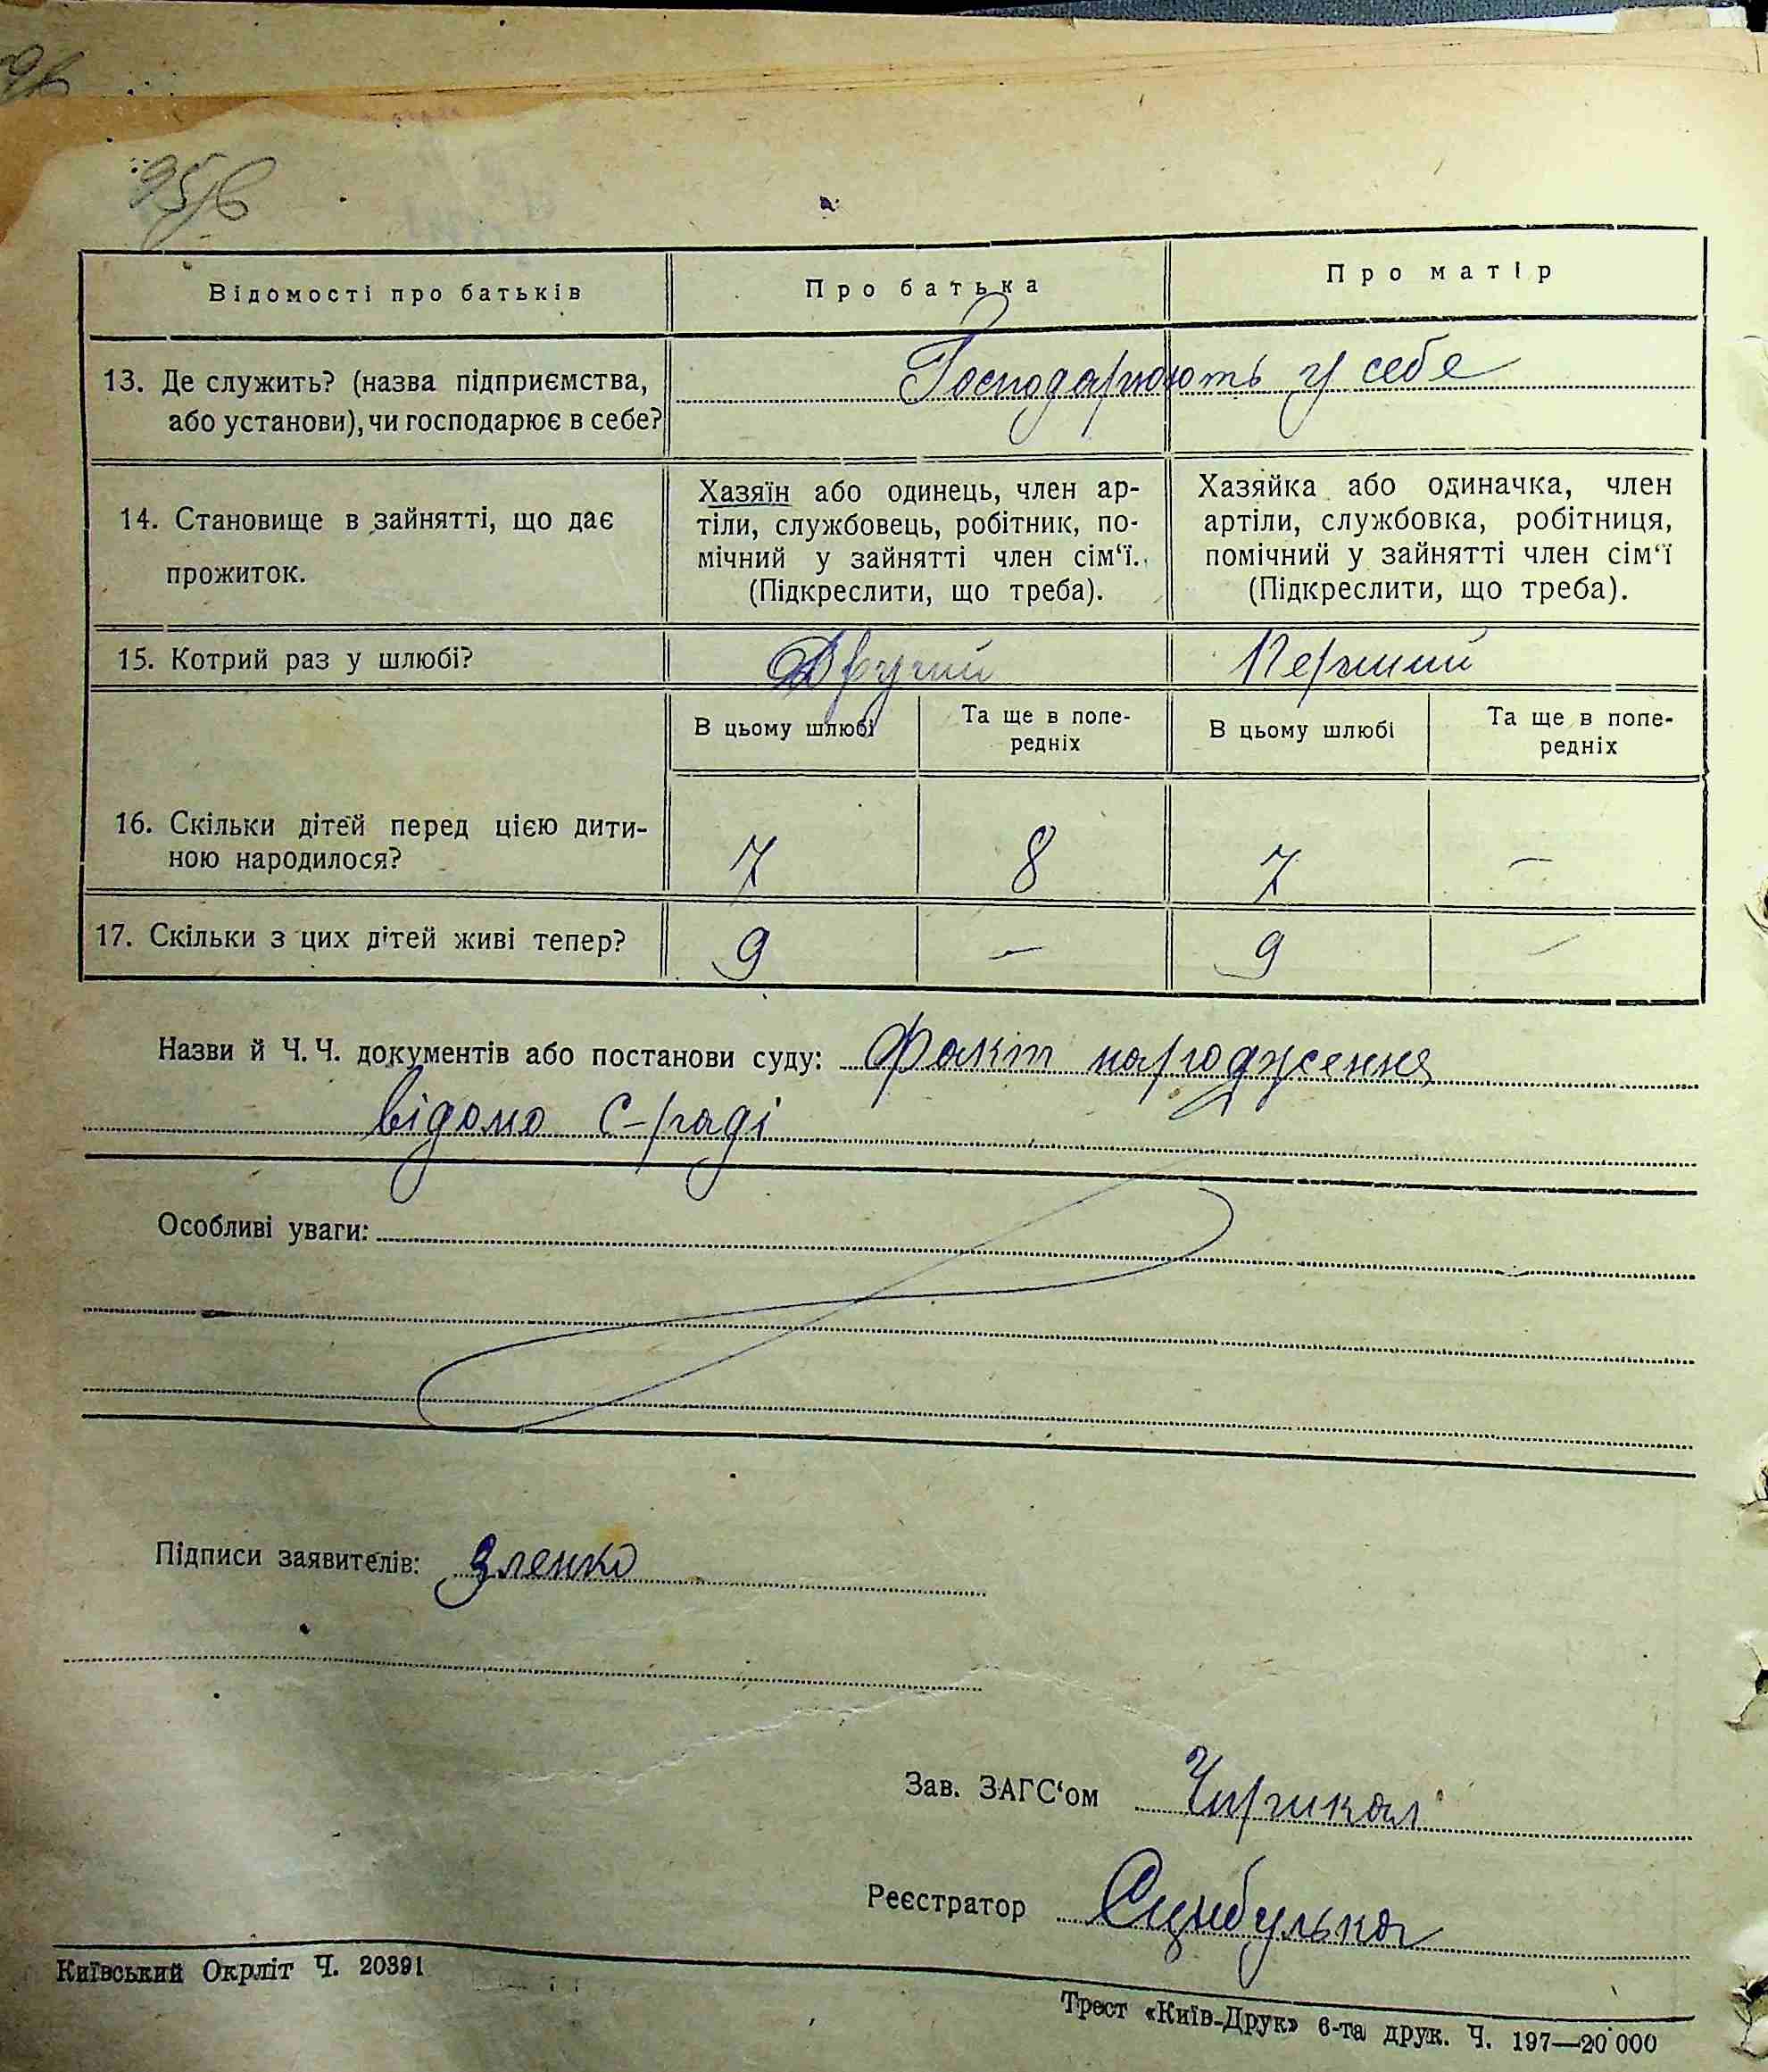 95/в
Відомості про батьків
Про батька
Про матір
13. Де служить? (назва підприємства,
або установи), чи господарює в себе?
Господарюють у себе
14. Становище в зайнятті, що дає
прожиток.
Хазяїн або одинець, член ар-
тіли, службовець, робітник, по-
мічний у зайнятті член сім‘ї.
(Підкреслити, що треба).
Хазяйка або одиначка, член
артіли, службовка, робітниця,
помічний у зайнятті член сім‘ї
(Підкреслити, що треба).
15. Котрий раз у шлюбі?
Другий
Перший
В цьому шлюбі
Та ще в попе-
редніх
В цьому шлюбі
Та ще в попе-
редніх
16. Скільки дітей перед цією дити-
ною народилося?
7
8
7
—
17. Скільки з цих дітей живі тепер?
9
—
9
—
Назви й Ч. Ч. документів або постанови суду: Факт народження
відомо С-раді
Особливі уваги:
Підписи заявителів: Зленко
Зав. ЗАГС‘ом
Реєстратор
Київський Окрліт Ч. 20391
Трест «Київ-Друк» 6-та друк. Ч. 197—20 000